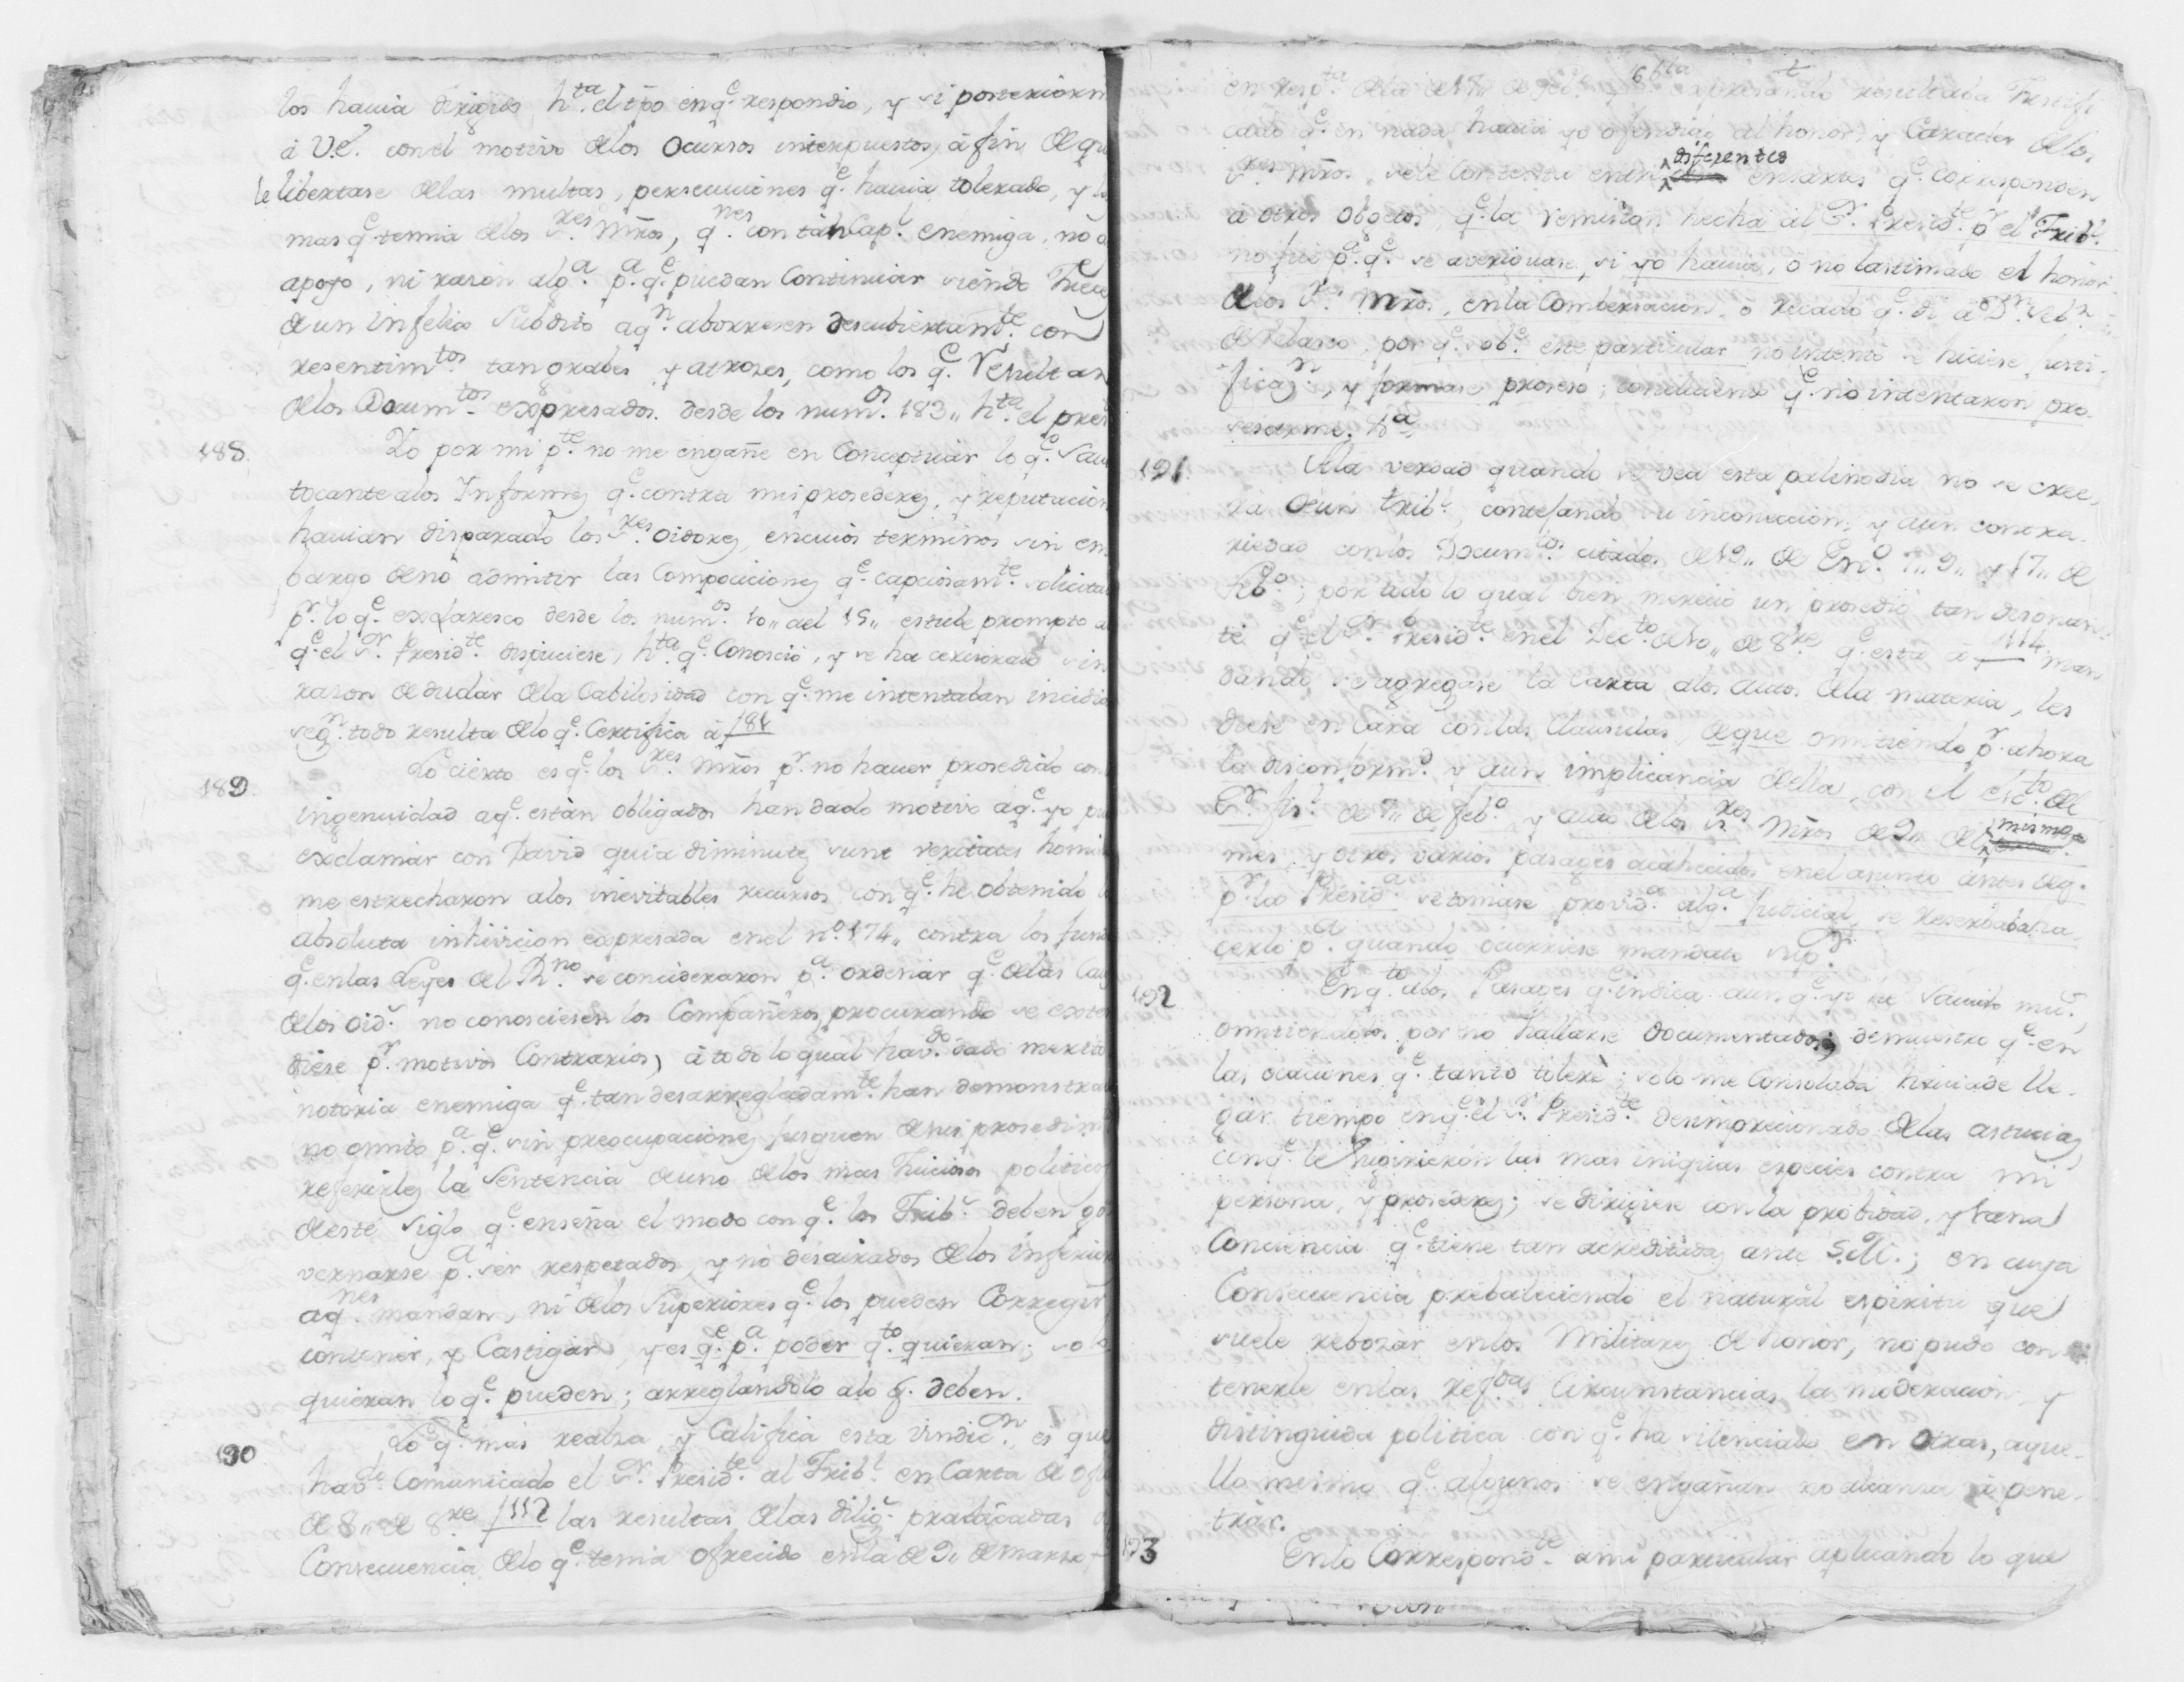 los hauia dirigido hta. el tpo en qe. respondio, y si posteriorm
á V.E. con el motivo de los Ocursos interpuestos, á fin de qu
le libertase de las multas, persecuciones qe. hauia tolerado, y
mas qe. temia de los Sres. Mros, qnes. con tan Capl. enemiga, no
apoyo, ni razon algª. pª. qe. puedan Continuar siendo Juec
de un infeliz Subdito aqn. aborresen descubiertamte. con
resentimtos. tan grabes y atroses, como los qe. Resultan
de los Documtos. expresados desde los numos. 183,, hta. el pres
188. Yo por mi pte. no me engañe en Conceptuar lo qe.
tocante alos Informes qe. contra mis prosederes, y reputacion
hauian disparado los Sres. oidores, en cuios terminos sin em
bargo de no admitir las Composiciones qe. capciosamte. solicita
pr. lo qe. exclaresco desde los numos. 10,, al 15,, estube prompto a
qe. el Sr. Presidte. dispusiese, hta. qe. Conoscio, y se ha cerciorado sin
razon de dudar de la Cabilosidad con qe. me intentaban
segn. todo resulta de lo qe. Certifica á f 84
189. Lo cierto es qe. los Sres. Mros pr. no hauer prosedido con
ingenuidad aqe. estàn obligados han dado motivo aqe. yo pu
exclamar con David quia diminutæ sunt veritates homi
me estrecharon alos inevitables recursos con qe. he obtenido
absoluta inhivicion expresada en el no. 174,, contra los
qe. en las Leyes del Rno. se concideraron pª. ordenar qe. de las Cau
de los oids. no conosciesen los Compañeros, procurando se exten
diese pr. motivos Contrarios, á todo lo qual havdo. dado merito
notoria enemiga qe. tan desarregladamte. han demonstra
no omito pª. qe. sin preocupaciones jusguen de sus prosedim
referirles la Sentencia de uno de los mas Juiciosos politicos
de este Siglo qe. enseña el modo con qe. los Tribs. deben go
vernarse pª. ser respetados, y no desairados de los inferior
aqnes. mandan, ni de los Superiores qe. los pueden Corregir
contener, y Castigar, y es qe. pª. poder qto. quieran; so
quieran lo qe. pueden; arreglandolo alo q. deben.
190 Lo qe. mas realza, y Califica esta vindicn., es que
havdo. Comunicado el Sr. Presidte. al Tribl. en Carta de
de 8,, de 8re f 112 las resultas de las diligs. practicadas
Consecuencia de lo qe. tenia ofrecido en la de 9,, de marzo
66
en respta. de la de expresando resultaba Justifi
cado qe. en nada hauia yo ofendido al honor, y Caracter de los
Sres. Mros, se le Contesta en diferentes ensartes qe. corresponden
á otros obgetos, qe. la remision hecha al Sr. Presidte. pr. el Tribl.
no fue pª. qe. se averiguase, si yo hauia, ó no lastimado el honor
de los Ss. Mros. en la Combersacion, ó recado qe. di á Dn.
de Velasco, por qe. sobe. este particular no intento se hiciese justi-
ficazn., y formase proseso; concluiendo qe. no intentaron pro-
sesarme.
191. A la verdad quando se vea esta palinodia no se cree-
rá de un tribl., contesando su inconeccion, y aun contra-
riedad con los Documtos. citados de 12,, de Eno. 7,, 9,, y 17,, de
Febo.; por todo lo qual bien merecio un prosedio tan disonan-
te qe. el Sr. Presidte. en el Decto. de 10,, de 8re. qe. està á f 114 man
dando se agregase la Carta alos autos de la materia, les
diese en cara con las Clausulas, de que omitiendo pr. ahora
la disconformd. y aun implicancia de ella, con el
Sr. fisl. de 7,, de febo. y auto de los Sres. Mros de 9,, del mismo
mes, y otros varios pasages acahecidos en el asunto antes deq.
pr. la Presidª. se tomase providª. algª. Judicial, se reserbaba ha-
cerlo pª. quando ocurriese mandato supr.
192 En qto. alos Pasages qe. indica aunqe. yo he
omitiendolos por no hallarse documentados, demuestra qe. en
las ocaciones qe. tanto tolerè; solo me Consolaba huviese lle-
gar tiempo en qe. el Sr. Presidte. desimpresionado de las astucias
con qe. le sugirieron las mas iniquas especies contra mi
persona, y prosederes; se dirigiese con la probidad, y sana
Conciencia qe. tiene tan acreditadas ante S.M.; en cuya
Consecuencia prebaleciendo el natural espiritu que
suele rebozar en los Militares de honor, no pudo con
tenerle en las refdas. Circunstancias la moderacion y
distinguida politica con qe. ha silenciado en otras, aque-
llo mesmo qe. algunos se engañan no alcansa á pene-
trár.
193 En lo Correspondte. ami particular aplicando lo que